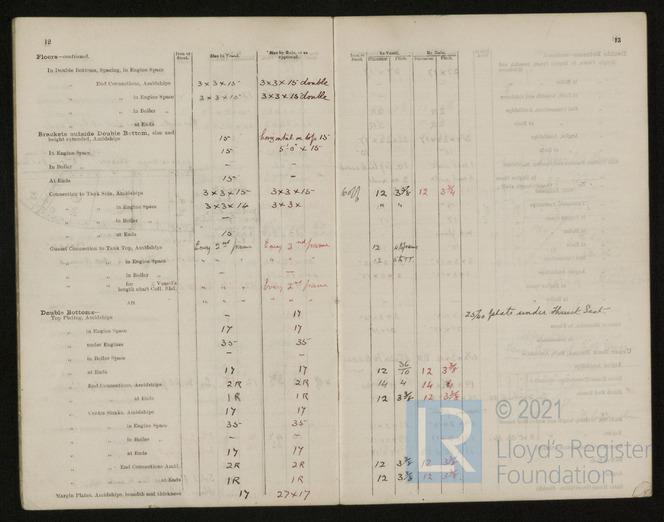 12
Floors—continued.
Item of Scant.
Size in Vessel.
Size by Rule, or as approved.
In Double Bottoms, Spacing, in Engine Space
End Connections, Amidships 3×3×15 3×3×15 double
" in Engine Space 3×3×15 3×3×15 double
" in Boiler "
" at Ends
Brackets outside Double Bottom, size and
height extended, Amidships 15 horizontal on top 15
In Engine Space 15 5'-0" × 15
In Boiler " – –
At Ends 15 –
Connection to Tank Side, Amidships 3×3×15 3×3×15
" " in Engine Space 3×3×14 3×3×
" " in Boiler " –
" " at Ends 15
Gusset Connection to Tank Top, Amidships Every 2nd frame Every 2nd frame
" " in Engine Space " " " " " "
" " in Boiler " – –
" " for Vessel's
length abaft Coll. Bhd. " " " Every 2nd frame
" " Aft " " " " " "
Double Bottoms—
Top Plating, Amidships – 17
" in Engine Space 17 17
" under Engines 35 35
" in Boiler Space – –
" at Ends 17 17
End Connections, Amidships 2R 2R
" at Ends 1R 1R
Centre Strake, Amidships 17 17
" in Engine Space 35 35
" in Boiler " – –
" at Ends 17 17
" End Connections Amid. 2R 2R
" " at Ends 1R 1R
Margin Plates, Amidships, breadth and thickness 17 27×17
13
In Vessel.
By Rule.
Item of Scant.
Diameter
Pitch.
Diameter
Pitch.
12 3⅜ 12 3¾
" "
12
12
25/60 plate under Thrust Seat
12 36/10 12 3⅜
14 4 14 4
12 3⅜ 12 3⅜
12 3⅜ 12 3⅜
12 3⅜ 12 3⅜
LR
© 2021
Lloyd's Register
Foundation